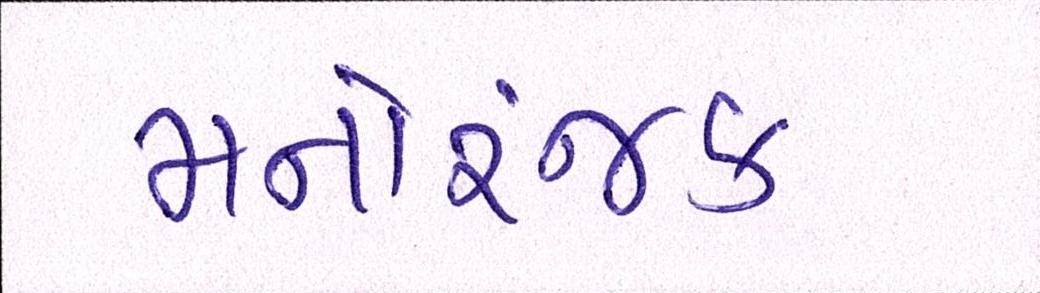 મનોરંજક